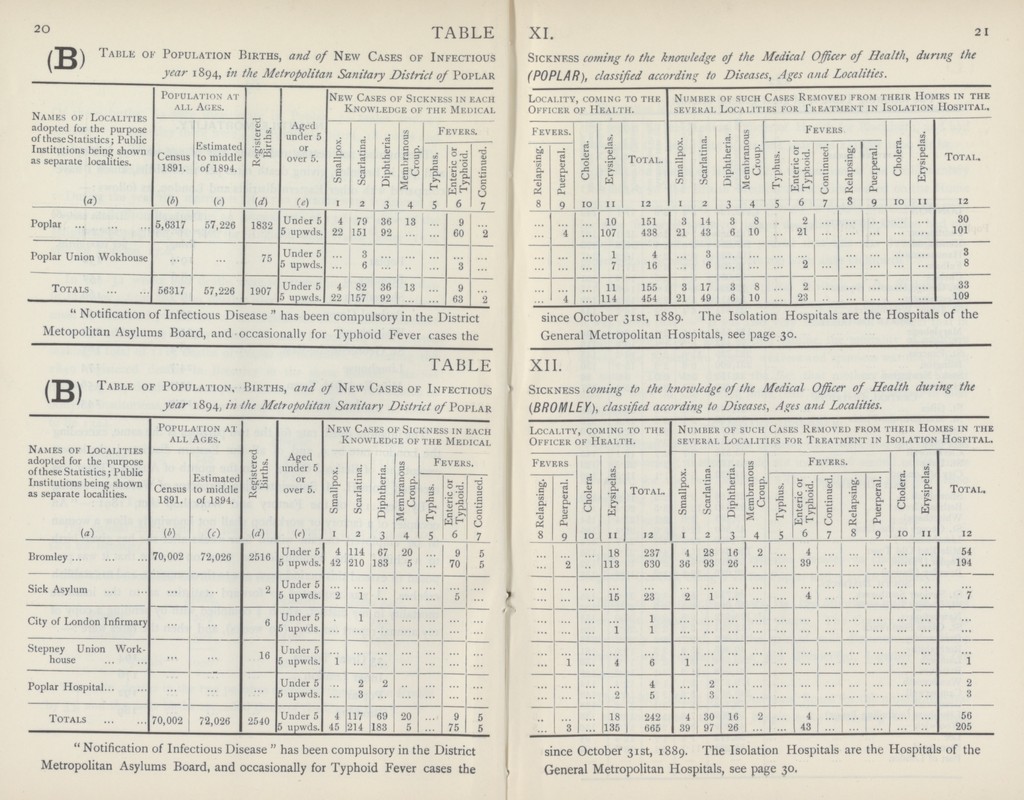 20 TABLE
(B) TABLE OF POPULATION BIRTHS, and of NEW CASES OF INFECTIOUS
year 1894, in the Metropolitan Sanitary District of POPLAR
NAMES OF LOCALITIES
adopted for the purpose
of these Statistics; Public
Institutions being shown
as separate localities.
(a)
POPULATION AT
ALL AGES.
Census
1891.
(b)
Estimated
to middle
of 1894.
(c)
Registered
Births.
(d)
Aged
under 5
or
over 5.
(e)
NEW CASES OF SICKNESS IN EACH
KNOWLEDGE OF THE MEDICAL
Smallpox.
Scarlatina.
Diphtheria.
Membranous
Croup.
FEVERS.
Typhus.
Enteric or
Typhoid.
Continued.
1 2 3 4 5 6 7
Poplar ... ... ... 5,6317 57,226 1832 Under 5 4 79 36 13 ... 9
5 upwds. 22 151 92 ... ... 60 2
Poplar Union Wokhouse ... ... 75 Under 5 ... 3 ... ... ... ... ...
5 upwds. ... 6 ... ... ... 3 ...
TOTALS ... ... 56317 57,226 1907 Under 5 4 82 36 13 ... 9 ...
5 upwds. 22 157 92 ... ... 63 2
“ Notification of Infectious Disease ” has been compulsory in the District
Metopolitan Asylums Board, and occasionally for Typhoid Fever cases the
TABLE
(B) TABLE OF POPULATION, BIRTHS, and of NEW CASES OF INFECTIOUS
year 1894, in the Metropolitan Sanitary District of POPLAR
NAMES OF LOCALITIES
adopted for the purpose
of these Statistics; Public
Institutions being shown
as separate localities.
(a)
POPULATION AT
ALL AGES.
Census
1891.
(b)
Estimated
to middle
of 1894.
(c)
Registered
Births.
(d)
Aged
under 5
or
over 5.
(e)
NEW CASES OF SICKNESS IN EACH
KNOWLEDGE OF THE MEDICAL
Smallpox.
Scarlatina.
Diphtheria.
Membranous
Croup.
FEVERS.
Typhus.
Enteric or
Typhoid.
Continued.
1 2 3 4 5 6 7
Bromley ... ... ... 70,002 72,026 2516 Under 5 4 114 67 20 ... 9 5
5 upwds. 42 210 183 5 ... 70 5
Sick Asylum ... ... ... ... 2 Under 5 ... ... ... ... ... ... ...
5 upwds. 2 1 ... ... ... 5 ...
City of London Infirmary ... ... 6 Under 5 . 1 ... ... ... ... ...
5 upwds. ... ... ... ... ... ... ...
Stepney Union Work-
house ... ... ... ... 16 Under 5 ... ... ... ... ... ... ...
5 upwds. 1 ... ... ... ... ... ...
Poplar Hospital... ... ... ... ... Under 5 ... 2 2 .. ... ... ...
5 upwds. ... 3 ... ... ... ... ...
TOTALS ... ... 70,002 72,026 2540 Under 5 4 117 69 20 ... 9 5
5 upwds. 45 214 183 5 ... 75 5
“ Notification of Infectious Disease ” has been compulsory in the District
Metropolitan Asylums Board, and occasionally for Typhoid Fever cases the
XI. 21
SICKNESS coming to the knowledge of the Medical Officer of Health, during the
(POPLAR), classified according to Diseases, Ages and Localities.
LOCALITY, COMING TO THE
OFFICER OF HEALTH.
FEVERS.
Relapsing.
Puerperal.
Cholera.
Erysipelas.
TOTAL.
8 9 10 11 12
NUMBER OF SUCH CASES REMOVED FROM THEIR HOMES IN THE
SEVERAL LOCALITIES FOR TREATMENT IN ISOLATION HOSPITAL.
Smallpox.
Scarlatina.
Diphtheria.
Membranous
Croup.
FEVERS
Typhus.
Enteric or
Typhoid.
Continued.
Relapsing.
Puerperal.
Cholera.
Erysipelas.
TOTAL.
1 2 3 4 5 6 7 8 9 10 11 12
... ... ... 10 151 3 14 3 8 .. 2 ... ... ... ... ... 30
... 4 ... 107 438 21 43 6 10 ... 21 ... ... ... ... ... 101
... ... ... 1 4 ... 3 ... ... ... ... ... ... ... ... ... 3
... ... ... 7 16 ... 6 ... ... ... 2 ... ... ... ... ... 8
... ... ... 11 155 3 17 3 8 ... 2 ... ... ... ... ... 33
... 4 ... 114 454 21 49 6 10 ... 23 .. ... ... .. ... 109
since October 31st, 1889. The Isolation Hospitals are the Hospitals of the
General Metropolitan Hospitals, see page 30.
XII.
SICKNESS coming to the knowledge of the Medical Officer of Health during the
(BROMLEY), classified according to Diseases, Ages and Localities.
LOCALITY, COMING TO THE
OFFICER OF HEALTH.
FEVERS
Relapsing.
Puerperal.
Cholera.
Erysipelas.
TOTAL.
8 9 10 11 12
NUMBER OF SUCH CASES REMOVED FROM THEIR HOMES IN THE
SEVERAL LOCALITIES FOR TREATMENT IN ISOLATION HOSPITAL.
Smallpox.
Scarlatina.
Diphtheria.
Membranous
Croup.
FEVERS.
Typhus.
Enteric or
Typhoid.
Continued.
Relapsing.
Puerperal.
Cholera.
Erysipelas.
TOTAL.
1 2 3 4 5 6 7 8 9 10 11 12
... ... ... 18 237 4 28 16 2 ... 4 ... ... ... ... ... 54
... 2 .. 113 630 36 93 26 ... ... 39 ... ... ... ... ... 194
... ... ... ... ... ... ... ... ... ... ... ... ... ... ... ... ...
... ... .. 15 23 2 1 ... ... ... 4 ... ... ... ... ... 7
... ... ... ... 1 ... ... ... ... ... ... ... ... ... ... ... ...
... ... ... 1 1 ... ... ... ... ... ... ... ... ... ... ... ...
... ... ... ... ... ... ... ... ... ... ... ... ... ... ... ... ...
... 1 ... 4 6 1 ... ... ... ... ... ... ... ... ... ... 1
... ... ... ... 4 ... 2 ... ... ... ... ... ... ... ... ... 2
... ... ... 2 5 ... 3 ... ... ... ... ... ... ... ... ... 3
.. ... ... 18 242 4 30 16 2 ... 4 ... ... ... ... ... 56
... 3 ... 135 665 39 97 26 ... ... 43 ... ... ... ... ... 205
since October 31st, 1889. The Isolation Hospitals are the Hospitals of the
General Metropolitan Hospitals, see page 30.